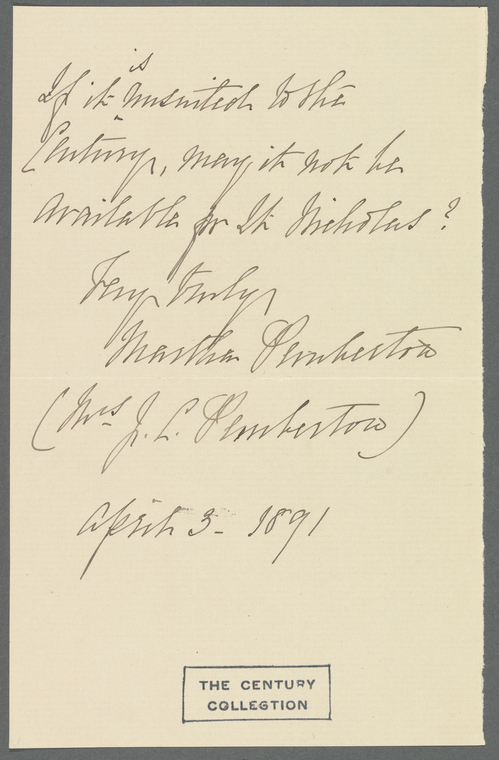 If it is unsuited to the
Century, may it not be
available for St Nicholas?
Very truly,
Martha Pemberton
(Mrs J. C. Pemberton)
April 3 - 1891
THE CENTURY
COLLECTION